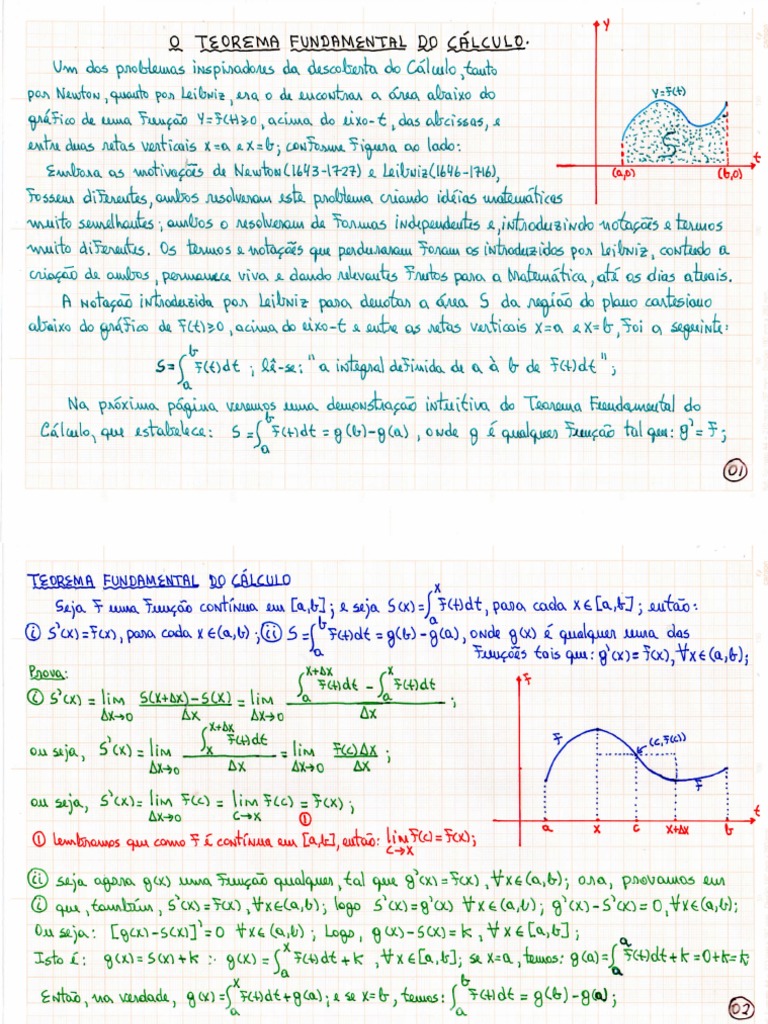 O TEOREMA FUNDAMENTAL DO CÁLCULO.
Um dos problemas inspiradores da descoberta do Cálculo, tanto
por Newton, quanto por Leibniz, era o de encontrar a área abaixo do
gráfico de uma Função Y=F(t)≥0, acima do eixo-t, das abcissas, e
entre duas retas verticais x=a e x=b; conforme Figura ao lado:
Y
Y=F(t)
S
t
(a,0)
(b,0)
Embora as motivações de Newton (1643-1727) e Leibniz (1646-1716),
Fossem diferentes, ambos resolveram este problema criando idéias matemáticas
muito semelhantes; ambos o resolveram de Formas independentes e, introduzindo notações e termos
muito diferentes. Os termos e notações que perduraram Foram os introduzidos por Leibniz, contudo a
criação de ambos, permanece viva e dando relevantes Frutos para a Matemática, até os dias atuais.
A notação introduzida por Leibniz para denotar a área S da região do plano cartesiano
abaixo do gráfico de F(t)≥0, acima do eixo-t e entre as retas verticais x=a e x=b, Foi a seguinte:
S=∫_a^b F(t)dt ; lê-se: "a integral definida de a à b de F(t)dt";
Na próxima página veremos uma demonstração intuitiva do Teorema Fundamental do
Cálculo, que estabelece: S=∫_a^b F(t)dt = g(b)-g(a), onde g é qualquer Função tal que: g'=F;
01
TEOREMA FUNDAMENTAL DO CÁLCULO
Seja F uma Função contínua em [a,b]; e seja S(x)=∫_a^x F(t)dt, para cada x∈[a,b]; então:
(i) S'(x)=F(x), para cada x∈(a,b); (ii) S=∫_a^b F(t)dt = g(b)-g(a), onde g(x) é qualquer uma das
Funções tais que: g'(x)=F(x), ∀x∈(a,b);
Prova:
(i) S'(x) = lim_{Δx→0} (S(x+Δx)-S(x))/Δx = lim_{Δx→0} (∫_a^{x+Δx} F(t)dt - ∫_a^x F(t)dt)/Δx ;
ou seja, S'(x) = lim_{Δx→0} (∫_x^{x+Δx} F(t)dt)/Δx = lim_{Δx→0} F(c)Δx/Δx ;
ou seja, S'(x) = lim_{Δx→0} F(c) = lim_{c→x} F(c) = F(x) ;
①
① lembramos que como F é contínua em [a,b], então: lim_{c→x} F(c)=F(x);
F
F
(c,F(c))
F
a x c x+Δx b t
(ii) seja agora g(x) uma Função qualquer, tal que g'(x)=F(x), ∀x∈(a,b); ora, provamos em
(i) que, também, S'(x)=F(x), ∀x∈(a,b); logo S'(x)=g'(x) ∀x∈(a,b); g'(x)-S'(x)=0, ∀x∈(a,b);
Ou seja: [g(x)-S(x)]'=0 ∀x∈(a,b); Logo, g(x)-S(x)=k, ∀x∈[a,b];
Isto é: g(x)=S(x)+k ∴ g(x)=∫_a^x F(t)dt+k, ∀x∈[a,b]; se x=a, temos: g(a)=∫_a^a F(t)dt+k=0+k=k
Então, na verdade, g(x)=∫_a^x F(t)dt+g(a); e se x=b, temos: ∫_a^b F(t)dt = g(b)-g(a);
02